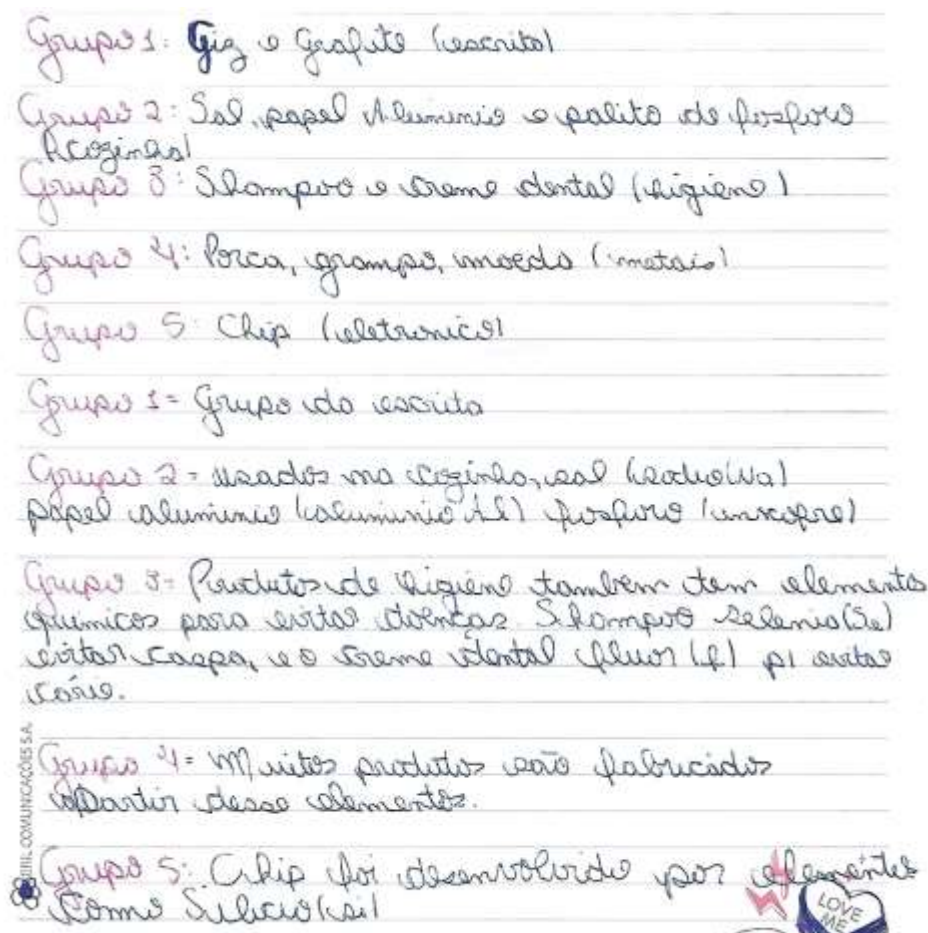 Grupo 1: Giz e Grafite (escrita)
Grupo 2: Sal, papel Aluminio e palito de fosforo
(Cozinha)
Grupo 3: Shampoo e creme dental (higiene)
Grupo 4: Porca, grampo, moeda (metais)
Grupo 5: Chip (eletronico)
Grupo 1= Grupo da escrita
Grupo 2= usados na cozinha, sal (sodio(Na)
papel aluminio (aluminio Al) fosforo (enxofre)
Grupo 3= Produtos de higiene tambem tem elementos
quimicos para evitar doenças. Shampoo Selenio(Se)
evitar caspa, e o creme dental fluor (f) p/ evitar
cárie.
Grupo 4= Muitos produtos são fabricados
apartir desse elementos.
Grupo 5: Chip foi desenvolvido por elementos
como Silicio(si)
COMUNICAÇÕES S.A.
LOVE
ME